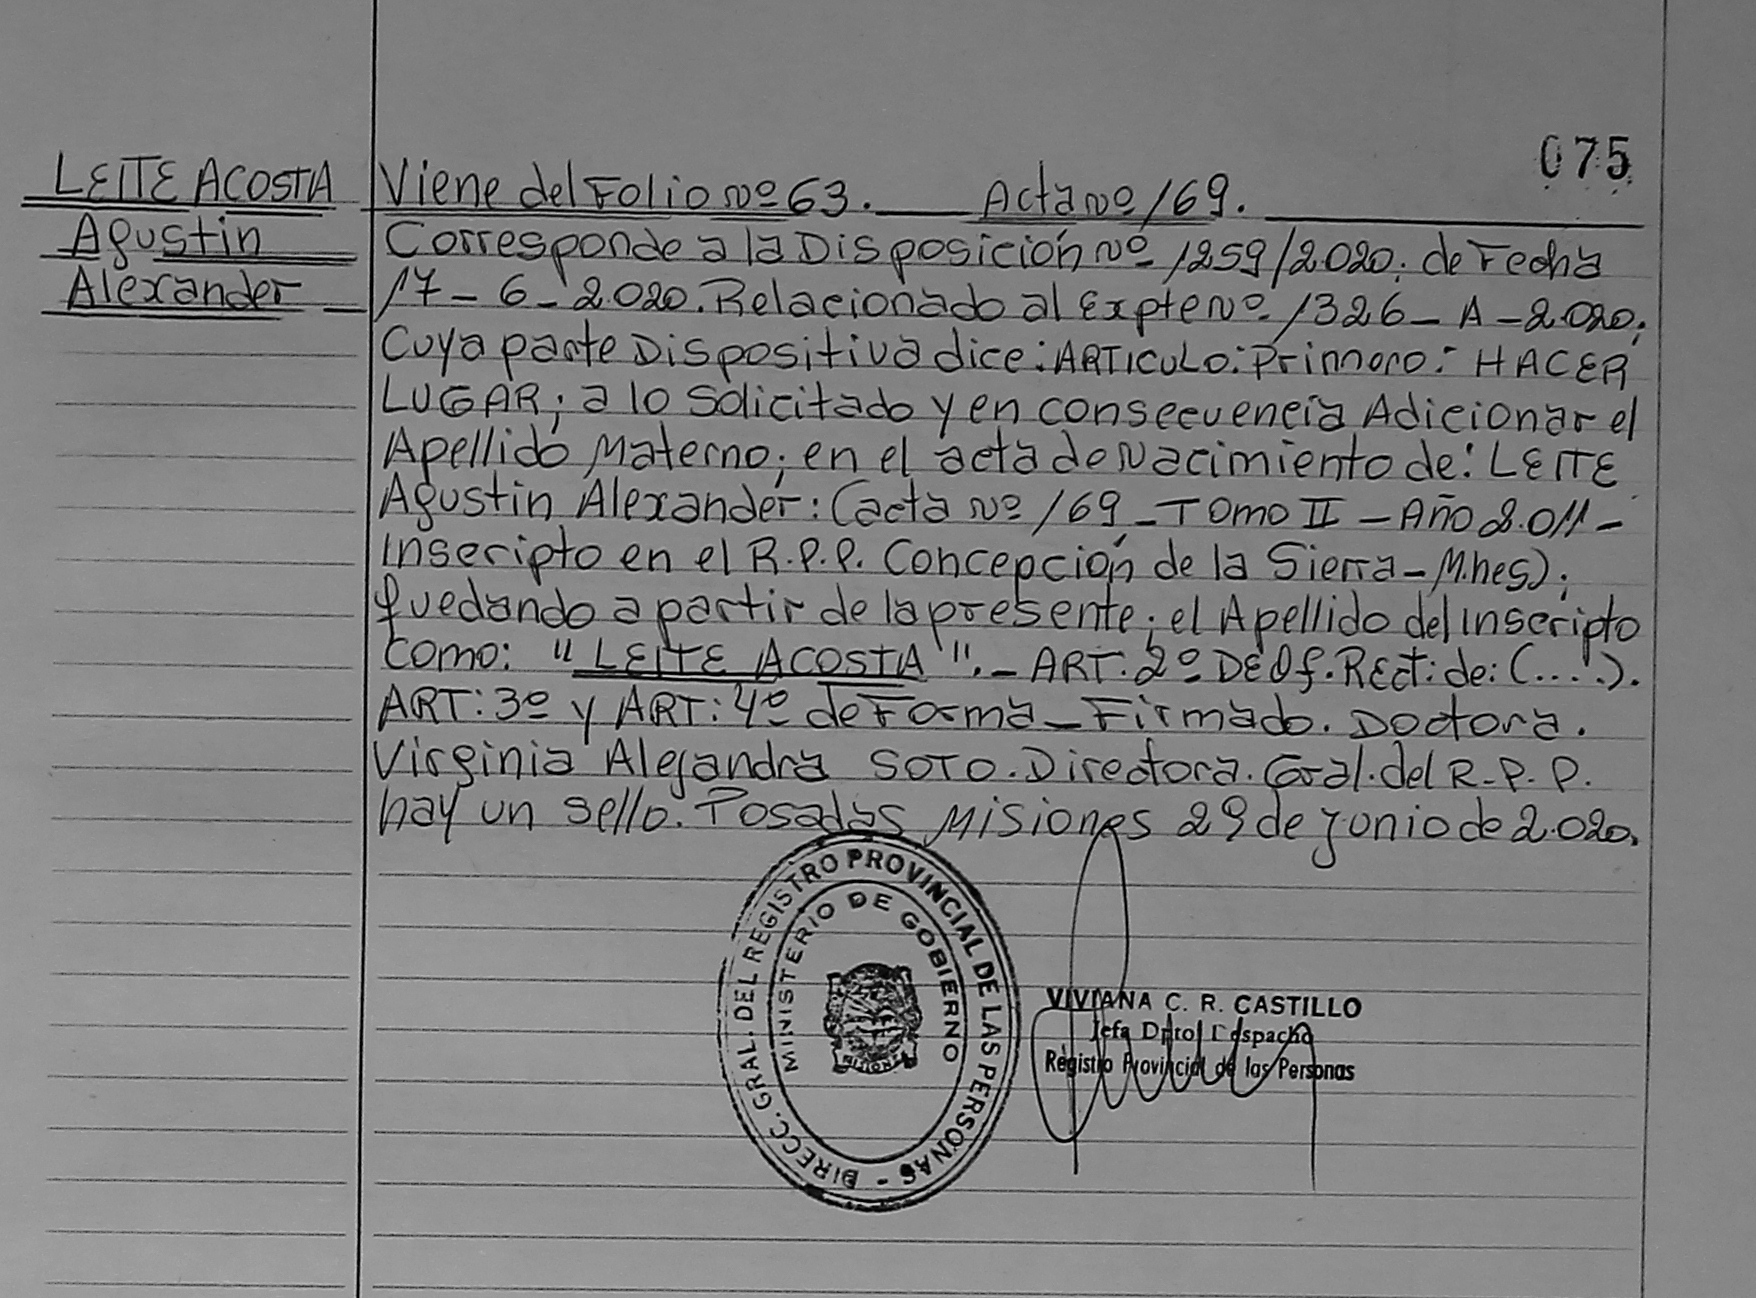 075
LEITE ACOSTA
Agustin
Alexander
Viene del Folio Nº 63. Acta Nº 169.
Corresponde a la Disposición Nº 1259/2020; de Fecha
17-6-2.020. Relacionado al Expte Nº 1326-A-2.020;
Cuya parte Dispositiva dice: ARTICULO: Primero: HACER
LUGAR; a lo solicitado y en consecuencia Adicionar el
Apellido Materno; en el acta de Nacimiento de: LEITE
Agustin Alexander: (acta Nº 169 - Tomo II - Año 2.011-
Inscripto en el R.P.P. Concepción de la Sierra - M.nes);
quedando a partir de la presente; el Apellido del Inscripto
como: "LEITE ACOSTA".- ART. 2º DE Of. Rect: de: (....).
ART: 3º y ART: 4º de Forma - Firmado. Doctora.
Virginia Alejandra SOTO. Directora. Gral. del R.P.P.
hay un sello. Posadas Misiones 29 de junio de 2.020.
DIRECC. GRAL. DEL REGISTRO PROVINCIAL DE LAS PERSONAS -
MINISTERIO DE GOBIERNO
MISIONES
VIVIANA C. R. CASTILLO
Jefa Dpto. Despacho
Registro Provincial de las Personas